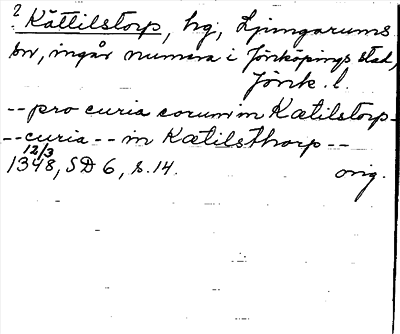 ? Kättilstorp, hg, Ljungarums
sn, ingår numera i Jönköpings stad,
Jönk. l.
-- pro curia eorum in Kætilstorp -
-- curia -- in Kætilsthorp --
12/3
1348, SD 6, s. 14. orig.